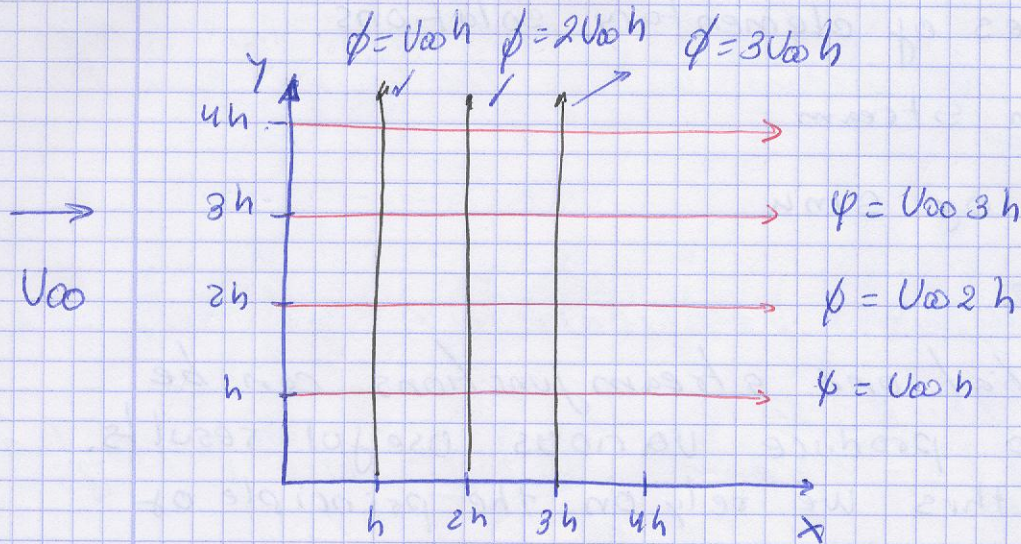 ϕ = U∞ h ϕ = 2U∞ h ϕ = 3U∞ h
Y
4h
3h ψ = U∞ 3h
U∞
2h ψ = U∞ 2h
h ψ = U∞ h
h 2h 3h 4h
X